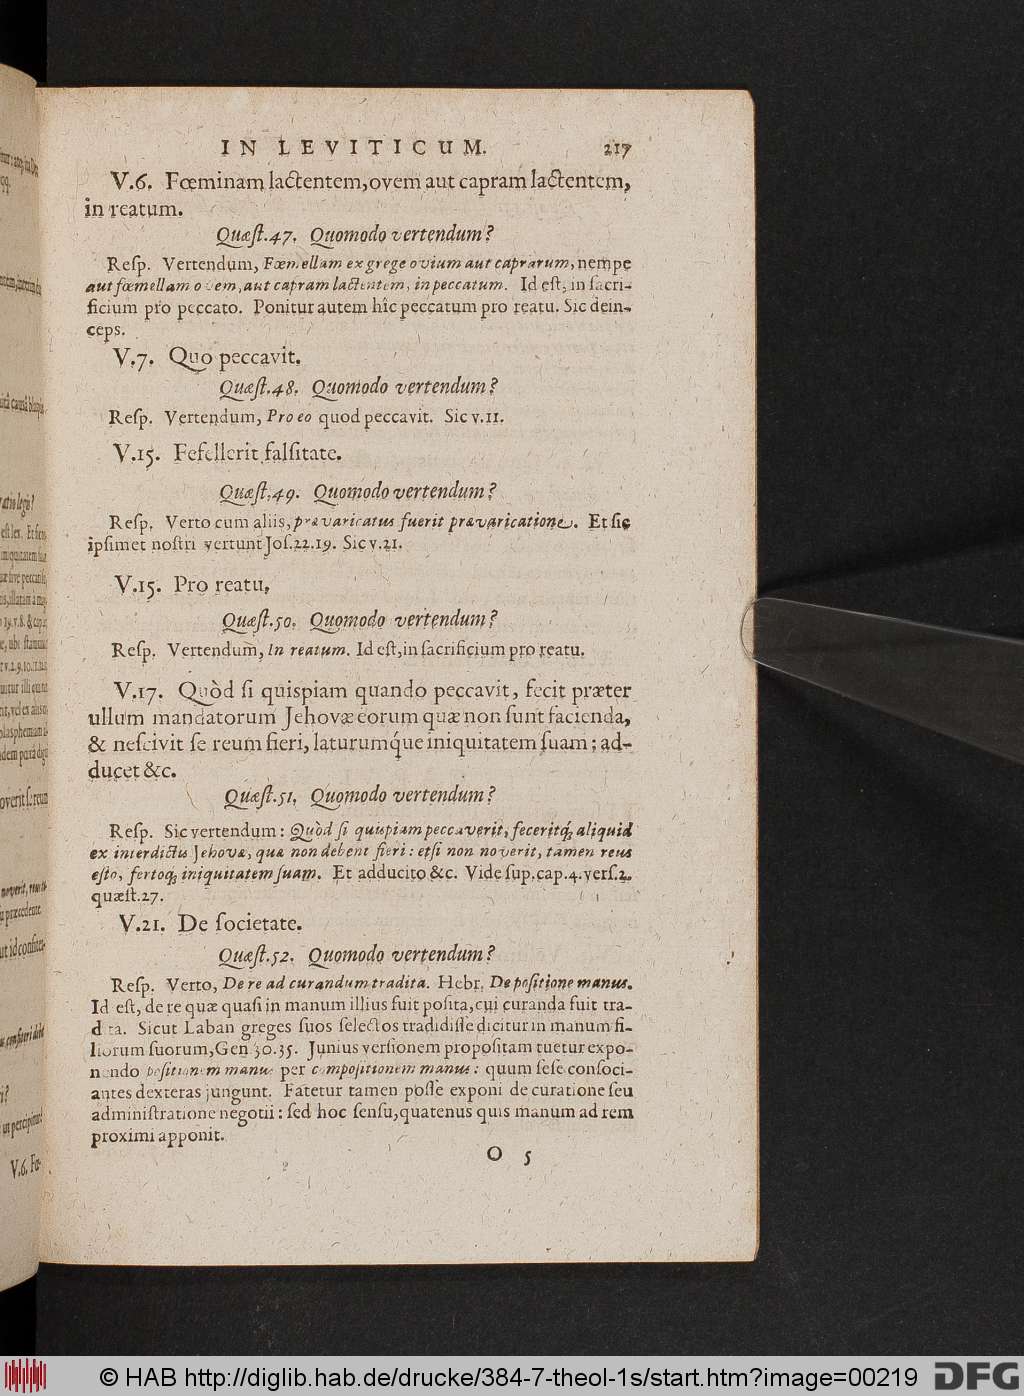 IN LEVITICUM. 217
V.6. Fœminam lactentem, ovem aut capram lactentem,
in reatum.
Quæſt.47. Quomodo vertendum?
Reſp. Vertendum, Fœmellam ex grege ovium aut caprarum, nempe
aut fœmellam ovem, aut capram lactentem, in peccatum. Id eſt, in ſacri-
ficium pro peccato. Ponitur autem hîc peccatum pro reatu. Sic dein-
ceps.
V.7. Quo peccavit.
Quæſt.48. Quomodo vertendum?
Reſp. Vertendum, Pro eo quod peccavit. Sic v.11.
V.15. Fefellerit falſitate.
Quæſt.49. Quomodo vertendum?
Reſp. Verto cum aliis, prævaricatus fuerit prævaricatione. Et ſic
ipſimet noſtri vertunt Joſ.22.19. Sic v.21.
V.15. Pro reatu,
Quæſt.50. Quomodo vertendum?
Reſp. Vertendum, In reatum. Id eſt, in ſacrificium pro reatu.
V.17. Quòd ſi quispiam quando peccavit, fecit præter
ullum mandatorum Jehovæ eorum quæ non ſunt facienda,
& neſcivit ſe reum fieri, laturumq́ue iniquitatem ſuam; ad-
ducet &c.
Quæſt.51. Quomodo vertendum?
Reſp. Sic vertendum: Quòd ſi quispiam peccaverit, feceritq́; aliquid
ex interdictis Jehovæ, quæ non debent fieri: etſi non noverit, tamen reus
eſto, fertoq́; iniquitatem ſuam. Et adducito &c. Vide ſup.cap.4.verſ.2.
quæſt.27.
V.21. De ſocietate.
Quæſt.52. Quomodo vertendum?
Reſp. Verto, De re ad curandum tradita. Hebr. De poſitione manus.
Id eſt, de re quæ quaſi in manum illius fuit poſita, cui curanda fuit tra-
dita. Sicut Laban greges ſuos ſelectos tradidiſſe dicitur in manum fi-
liorum ſuorum, Gen 30.35. Junius verſionem propoſitam tuetur expo-
nendo poſitionem manus per compoſitionem manus: quum ſeſe conſoci-
antes dexteras jungunt. Fatetur tamen poſſe exponi de curatione ſeu
adminiſtratione negotii: ſed hoc ſenſu, quatenus quis manum ad rem
proximi apponit.
O 5
© HAB http://diglib.hab.de/drucke/384-7-theol-1s/start.htm?image=00219
DFG